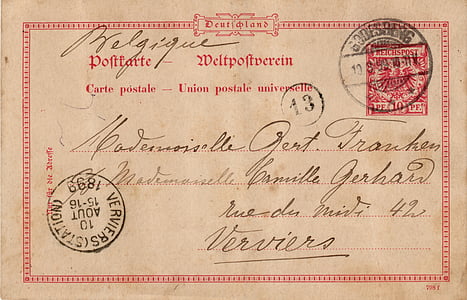 Deutschland
Belgique
Postkarte — Weltpostverein
Carte postale — Union postale universelle
GODESBERG
REICHSPOST
10 PF
13
Nur für die Adresse
Mademoiselle Bert. Franken
Mademoiselle Camilla Gerhard
rue du midi 42
Verviers
VERVIERS (STATION)
10
AOUT
15-16
1899
798 f